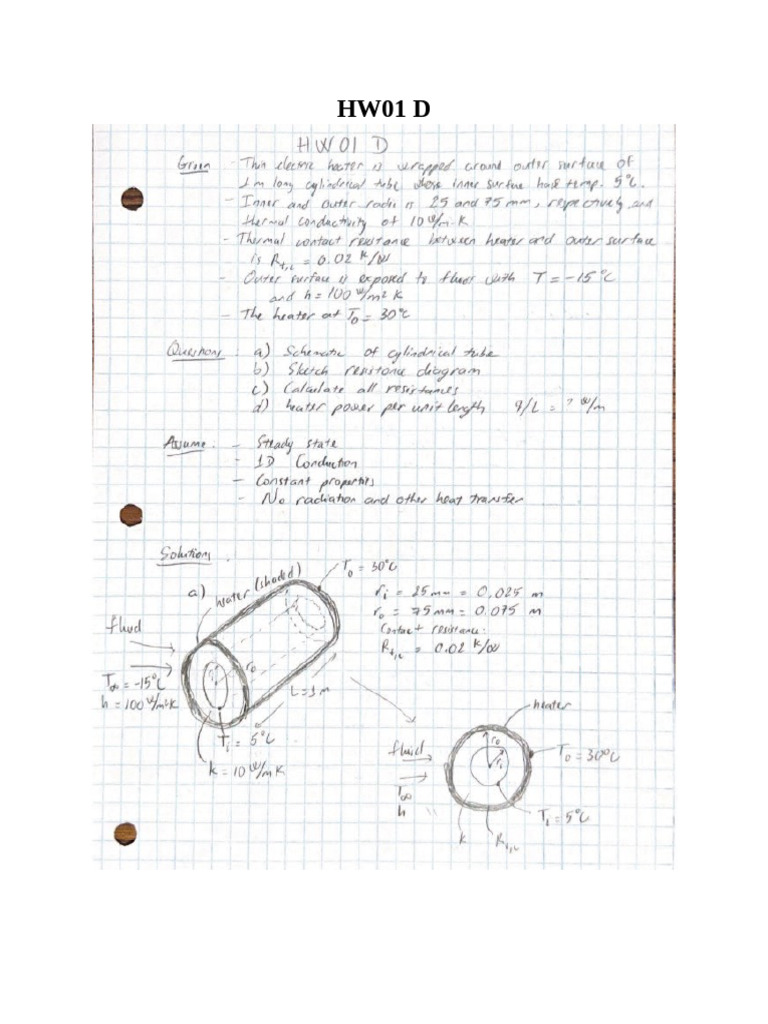 HW01 D
HW01 D
Given - Thin electric heater is wrapped around outer surface of
1m long cylindrical tube whose inner surface has temp. 5°C.
- Inner and outer radii is 25 and 75 mm, respectively and
thermal conductivity of 10 W/m·K
- Thermal contact resistance between heater and outer surface
is Rt,c = 0.02 K/W
- Outer surface is exposed to fluid with T = -15°C
and h = 100 W/m²K
- The heater at To = 30°C
Questions : a) Schematic of cylindrical tube
b) Sketch resistance diagram
c) Calculate all resistances
d) heater power per unit length q/L = ? W/m
Assume : - Steady state
- 1D Conduction
- Constant properties
- No radiation and other heat transfer
Solutions :
a) heater (shaded)
To = 30°C
ri = 25 mm = 0,025 m
ro = 75 mm = 0.075 m
Contact resistance:
Rt,c = 0.02 K/W
fluid
T∞ = -15°C
h = 100 W/m²K
ri
ro
L = 1m
Ti = 5°C
k = 10 W/mK
heater
fluid
T∞
h
ro
ri
To = 30°C
Ti = 5°C
k
Rt,c